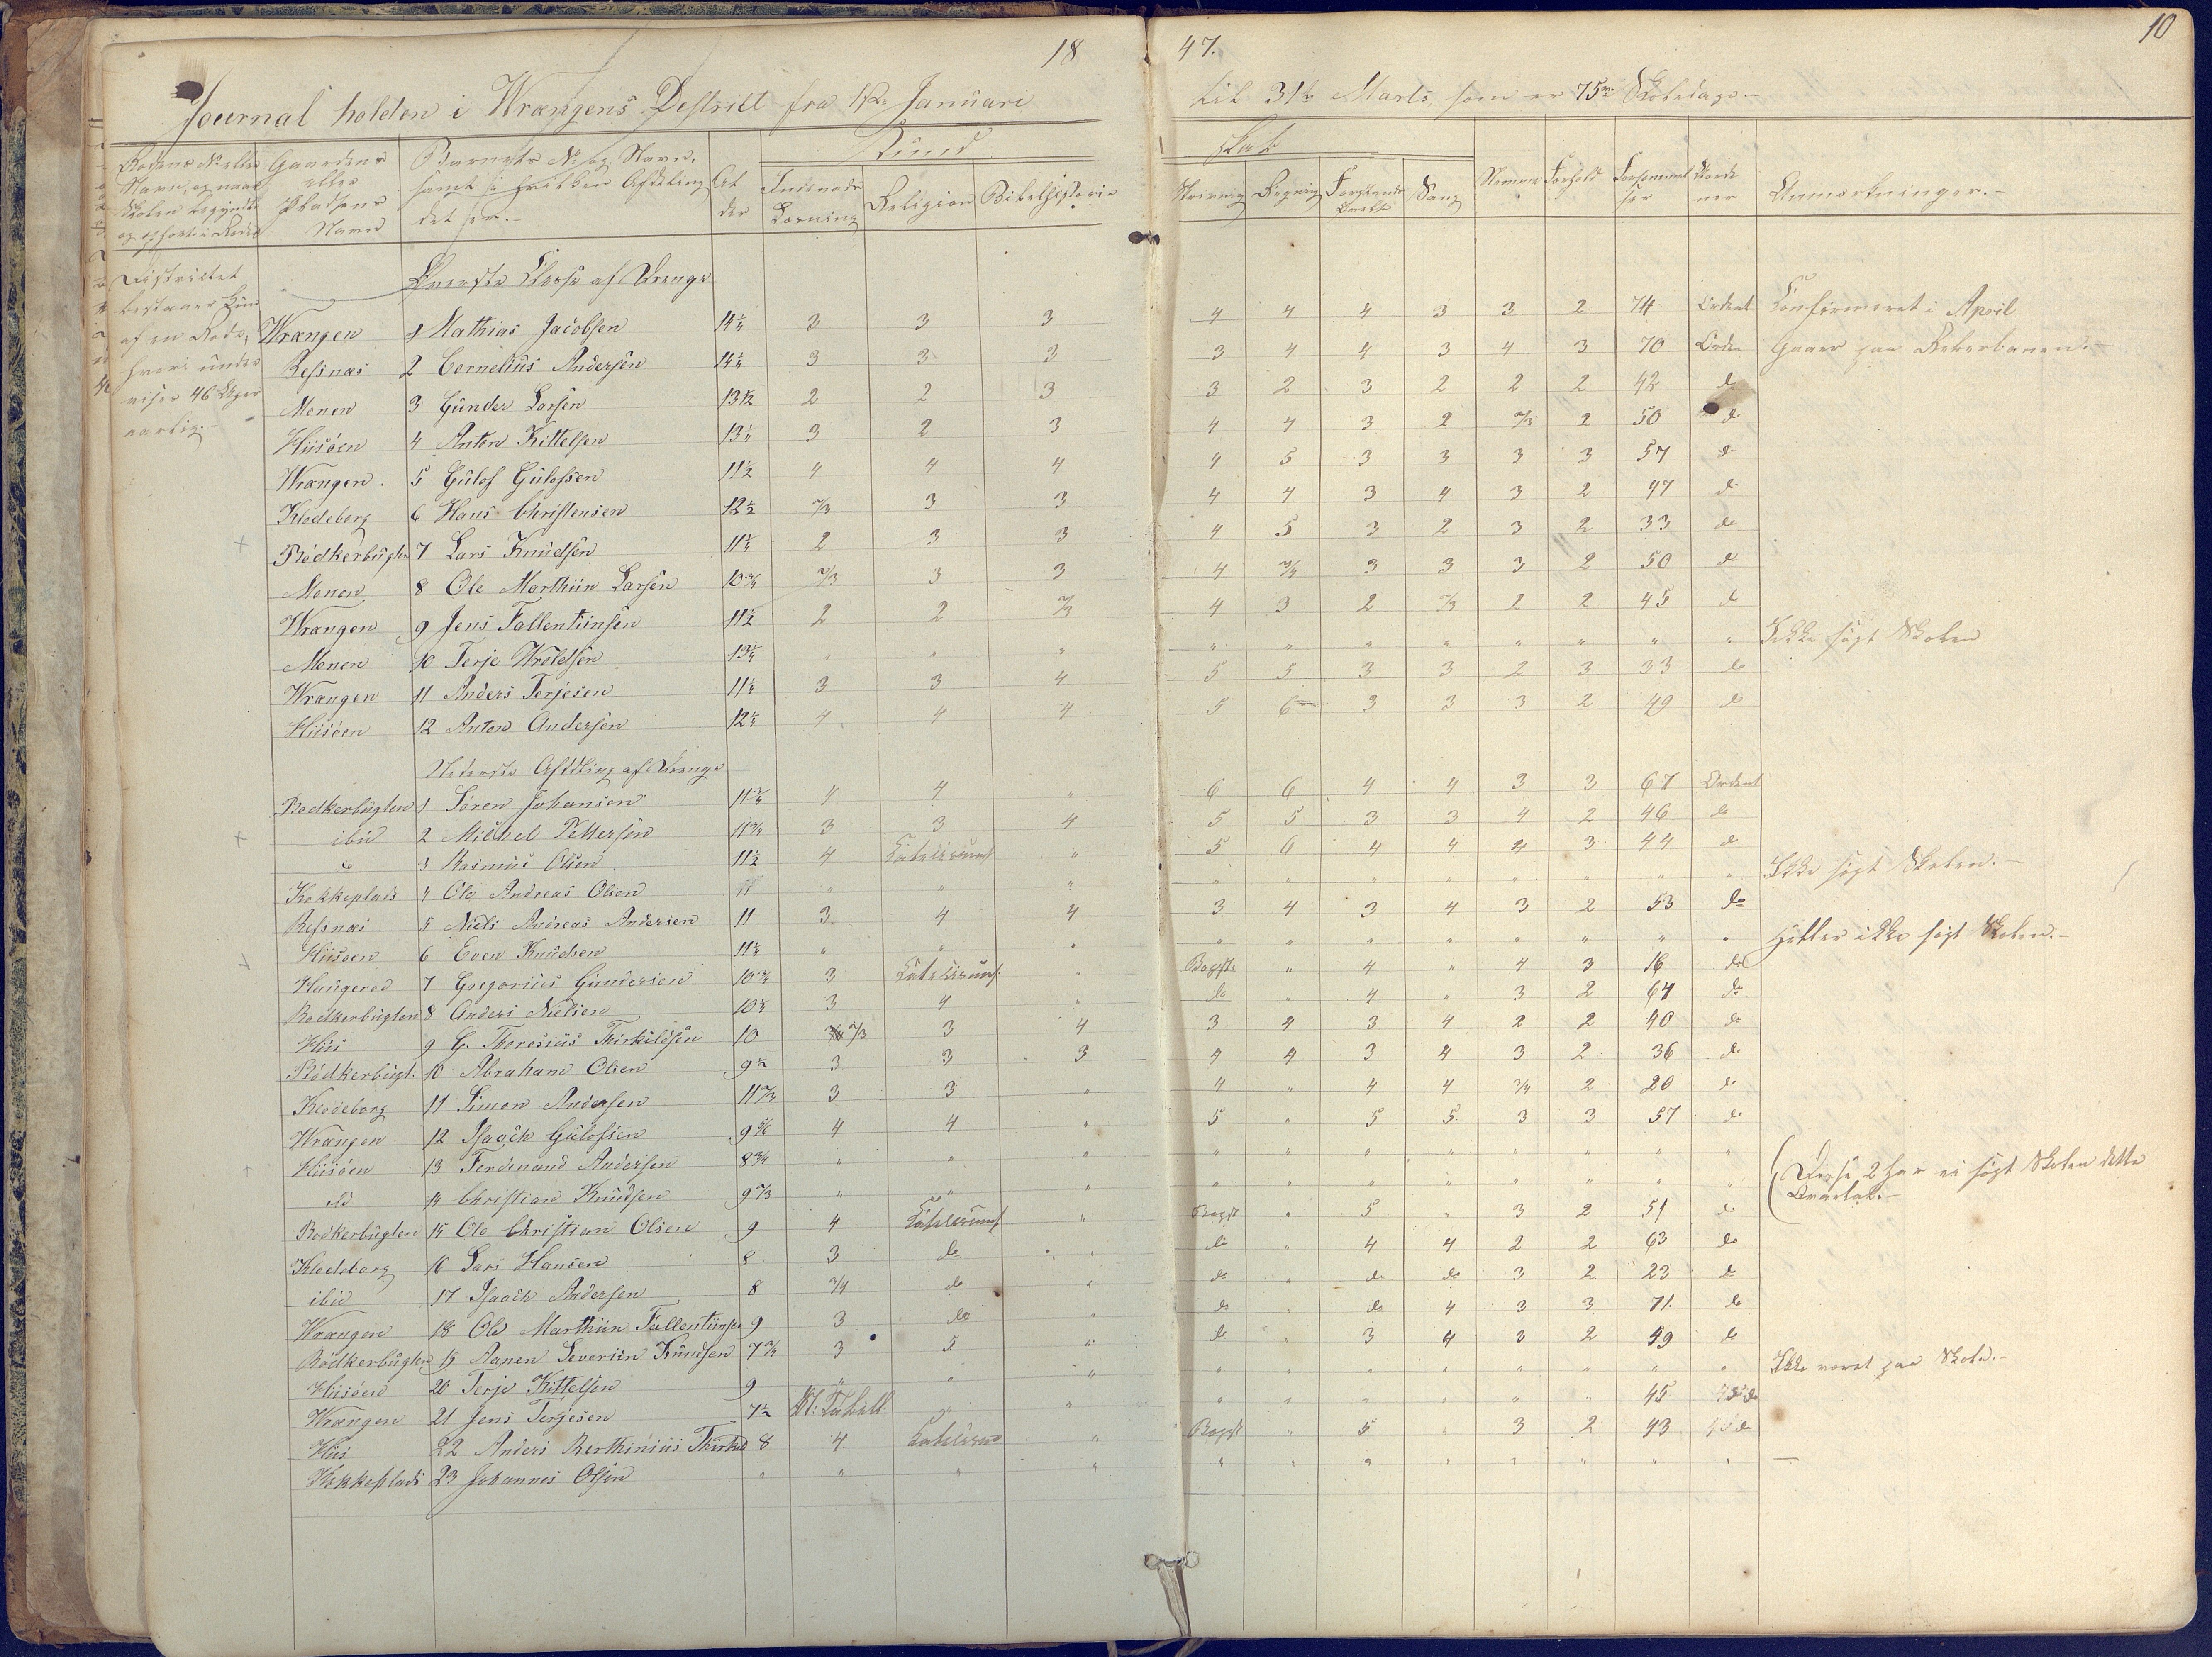 18 47. 10
Journal holden i Wrængens Destrikt fra 1ste Januari til 31te Marts, som er 75 Skoledage.-
Rodens No eller Navn, og naar Skolen begyndte og ophørte i Roden
Gaardens eller Pladsens Navn
Barnets No og Navn, samt hvilken Afdeling det er.-
Alder
Kundskab
Indenads Læsning
Religion
Bibelhistorie
Skrivning
Regning
Forstands Øvelse
Sang
Nemme
Forhold
Forsømmelser
Anmærkninger.-
Districtet bestaaer kun af en Rode, hvori underviser 46 Uger aarlig.-
Øverste Classe af Drenge
Wrængen 1 Mathias Jacobsen 14¼ 3 3 3 4 4 4 3 3 2 74 Ordent Konfirmeret i April
Refsnæs 2 Cornelius Andersen 14¼ 3 3 3 3 4 4 3 4 3 70 Orden Gaaer paa Rekerbanen.-
Monen 3 Gunder Larsen 13½ 2 2 3 3 2 3 2 2 2 42 do
Hiisöen 4 Anton Kittelsen 13¼ 3 2 3 4 4 3 2 2/3 2 50 do
Wrængen 5 Gülof Gülofsen 11½ 4 4 4 4 5 3 3 3 3 57 do
Klodeborg 6 Hans Christensen 12½ 2/3 3 3 4 4 3 4 3 2 47 do
Bödkerbugten 7 Lars Knudsen 11¼ 2 3 3 4 5 3 2 3 2 33 do
Monen 8 Ole Marthiin Larsen 10¾ 2/3 3 3 4 3 3 3 2 50 do
Wrangen 9 Jens Fallentinsen 11½ 2 2 2/3 4 3 2 2/3 2 2 45 do
Monen 10 Terje Wroldsen 13¼ " " " " " " " " " " " Ikke søgt Skolen
Wrangen 11 Anders Terjesen 11¼ 3 3 4 5 5 3 3 2 3 33 do
Hiisöen 12 Anton Andersen 12¼ 4 4 4 5 6 3 3 3 2 49 do
Nederste Afdeling af Drenge
Bodkerbugten 1 Sören Johansen 11¼ 4 4 " 6 6 4 4 3 3 67 Ordent
ibid 2 Michel Pettersen 11¾ 3 3 4 5 5 3 3 4 2 46 do
do 3 Rasmus Olsen 11½ 4 Katekismus " 5 6 4 4 4 3 44 do
Kokkeplads 4 Ole Andreas Olsen 11 " " " " " " " " " " " Ikke søgt Skolen.-
Refsnæs 5 Niels Andreas Andersen 11 3 4 4 3 4 3 4 3 2 53 do
Hiisöen 6 Even Knudsen 11¼ " " " " " " " " " " " Heller ikke søgt Skolen.-
Haugerod 7 Gregorius Gundersen 10¾ 3 Katekismus " Bogst: " 4 " 4 3 16 do
Bodkerbugten 8 Anders Nielsen 10¼ 3 4 " do " 4 " 3 2 64 do
Hiis 9 G. Theresius Thirkildsen 10 2/3 3 4 3 4 3 4 2 2 40 do
Bödkerbugt. 10 Abraham Olsen 9½ 3 3 3 4 4 3 4 3 2 36 do
Klodeborg 11 Simon Andersen 11 2/3 3 3 " 4 " 4 4 3/4 2 20 do
Wrængen 12 Isaach Gülofsen 9 5/6 4 4 " 5 " 5 5 3 3 57 do
Hiisöen 13 Ferdinand Andersen 8¾ " " " " " " " " " " "
id 14 Christian Knudsen 9 2/3 " " " " " " " " " " " Disse 2 har ei søgt Skolen dette Qvartal.-
Bodkerbugten 15 Ole Christian Olsen 9 4 Katekismus " Bogst " 5 " 3 2 51 do
Klodeborg 16 Lars Hansen 8 3 do " do " 4 4 2 2 63 do
ibid 17 Isaach Andersen 8 3/4 do " do " do do 3 2 23 do
Wrængen 18 Ole Marthiin Fallentiinsen 9 3 do " do " do 4 3 3 71 do
Bödkerbugten 19 Aanen Severiin Knudsen 7¾ 3 5 " do " 3 4 3 2 59 do
Hiisöen 20 Terje Kittelsen 9 " " " " " " " " " " " Ikke været paa Skole.-
Wrængen 21 Jens Terjesen 7½ " " " " " " " " 45 do
Hiis 22 Anders Berthinius Thirkild 8 4 Katekismus " Bogst " 5 " 3 2 43 do
Kokkeplads 23 Johannes Olsen " " " " " " " " " " " " —